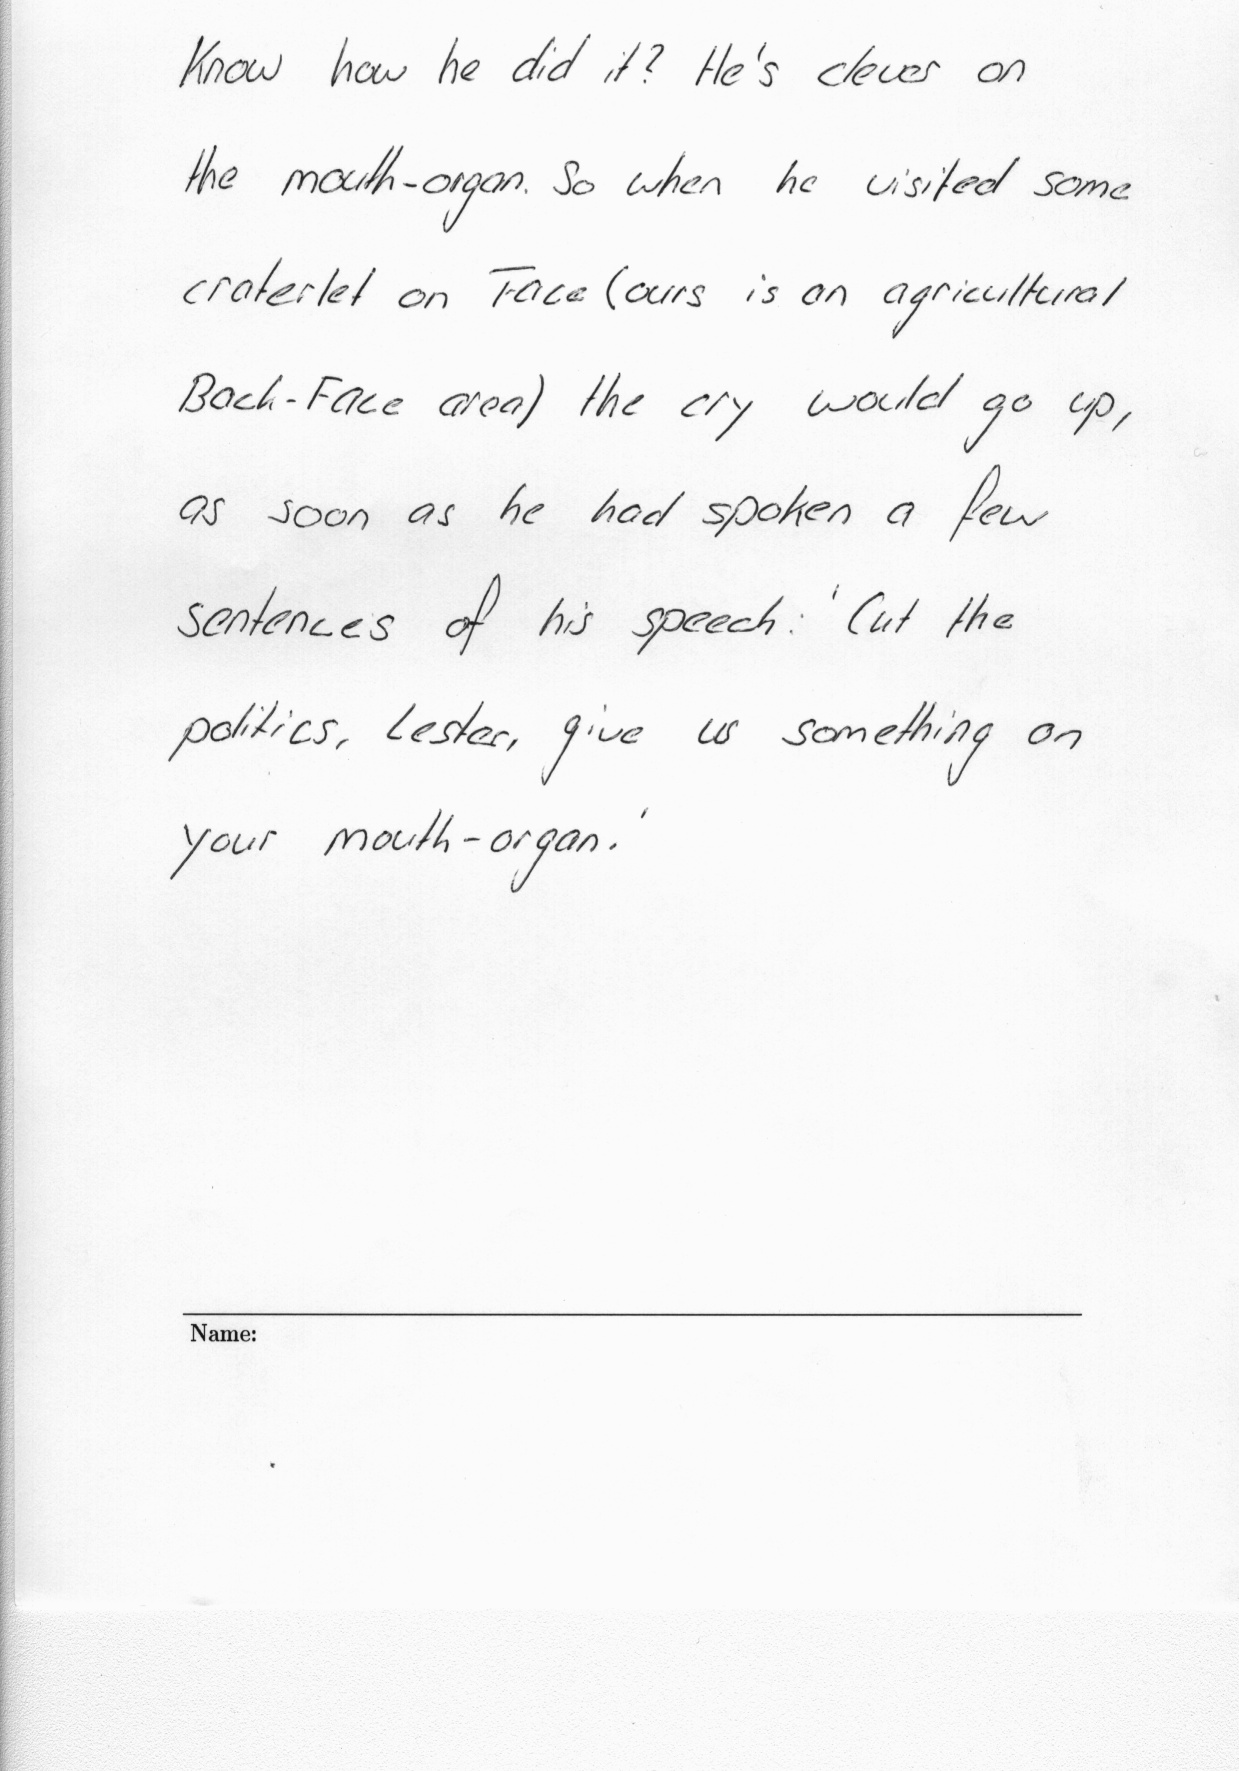 Know how he did it? He's clever on
the mouth-organ. So when he visited some
craterlet on Face (ours is an agricultural
Back-Face area) the cry would go up,
as soon as he had spoken a few
sentences of his speech: 'Cut the
politics, Lester, give us something on
your mouth-organ.'
Name: